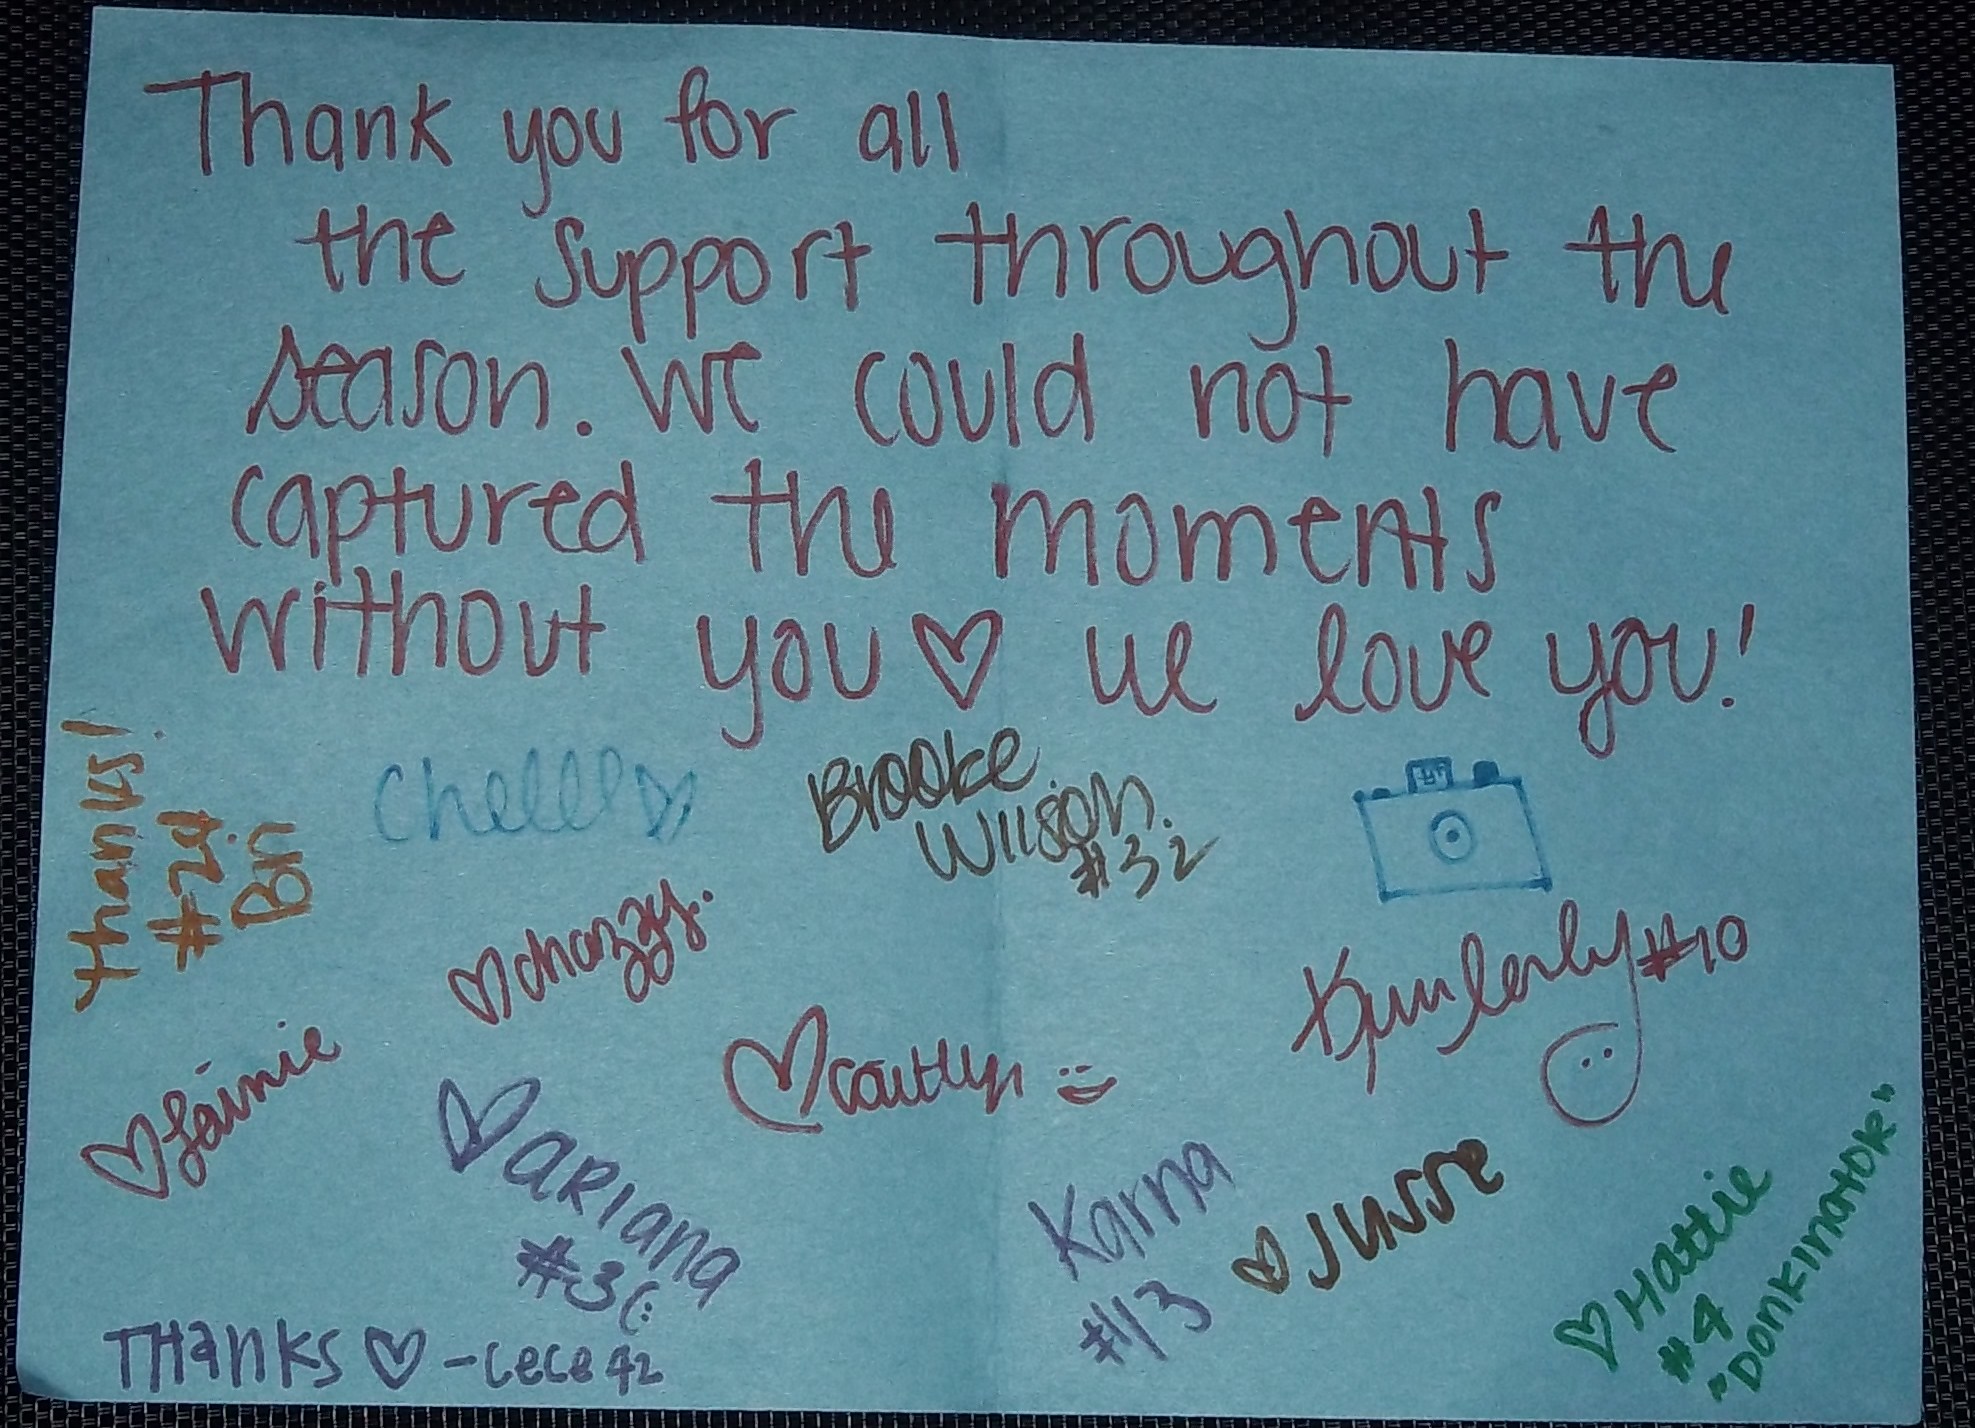 Thank you for all
the support throughout the
season. We could not have
captured the moments
without you ♡ we love you!
thanks!
#24
Bri
Chelle ♡
Brooke
Wilson.
#32
♡ chazzy.
Kimberly #10
♡ Lainie
♡ Caitlyn :)
♡ ARIANA
#3 (:
Karna
#13
♡ Jusse
♡ Hattie
#4
"DONKINATOR"
THANKS ♡ - cece 42